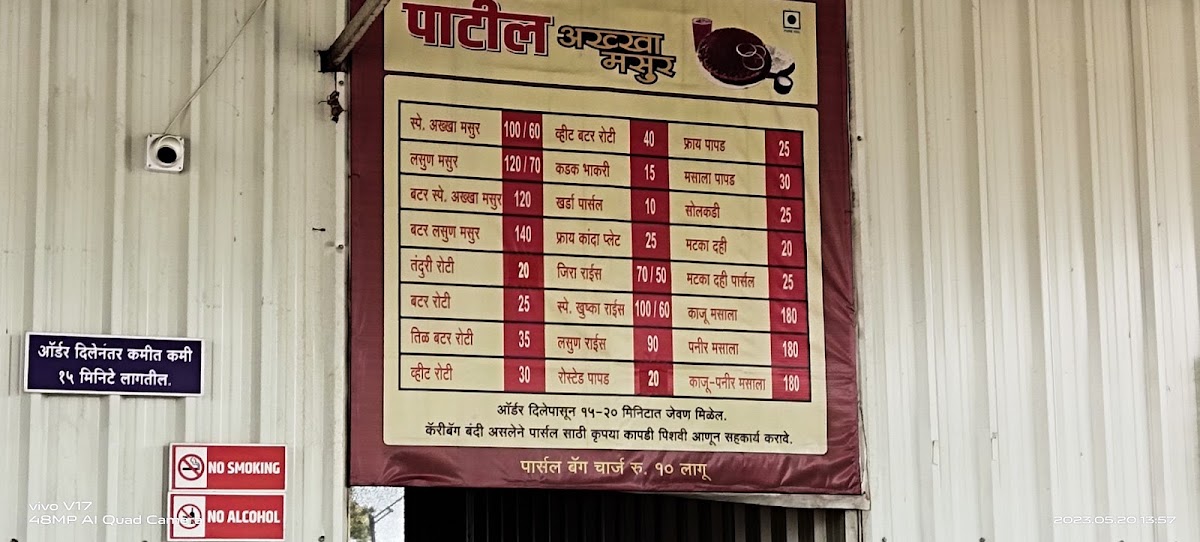 पाटील अख्खा
मसुर
स्पे. अख्खा मसुर 100 / 60 व्हीट बटर रोटी 40 फ्राय पापड 25
लसुण मसुर 120 / 70 कडक भाकरी 15 मसाला पापड 30
बटर स्पे. अख्खा मसुर 120 खर्डा पार्सल 10 सोलकडी 25
बटर लसुण मसुर 140 फ्राय कांदा प्लेट 25 मटका दही 20
तंदुरी रोटी 20 जिरा राईस 70 / 50 मटका दही पार्सल 25
बटर रोटी 25 स्पे. खुष्का राईस 100 / 60 काजू मसाला 180
तिळ बटर रोटी 35 लसुण राईस 90 पनीर मसाला 180
व्हीट रोटी 30 रोस्टेड पापड 20 काजू-पनीर मसाला 180
ऑर्डर दिलेपासून १५-२० मिनिटात जेवण मिळेल.
कॅरीबॅग बंदी असलेने पार्सल साठी कृपया कापडी पिशवी आणून सहकार्य करावे.
पार्सल बॅग चार्ज रु. १० लागू
ऑर्डर दिलेनंतर कमीत कमी
१५ मिनिटे लागतील.
NO SMOKING
NO ALCOHOL
vivo V17
48MP AI Quad Camera
2023.05.20 13:57